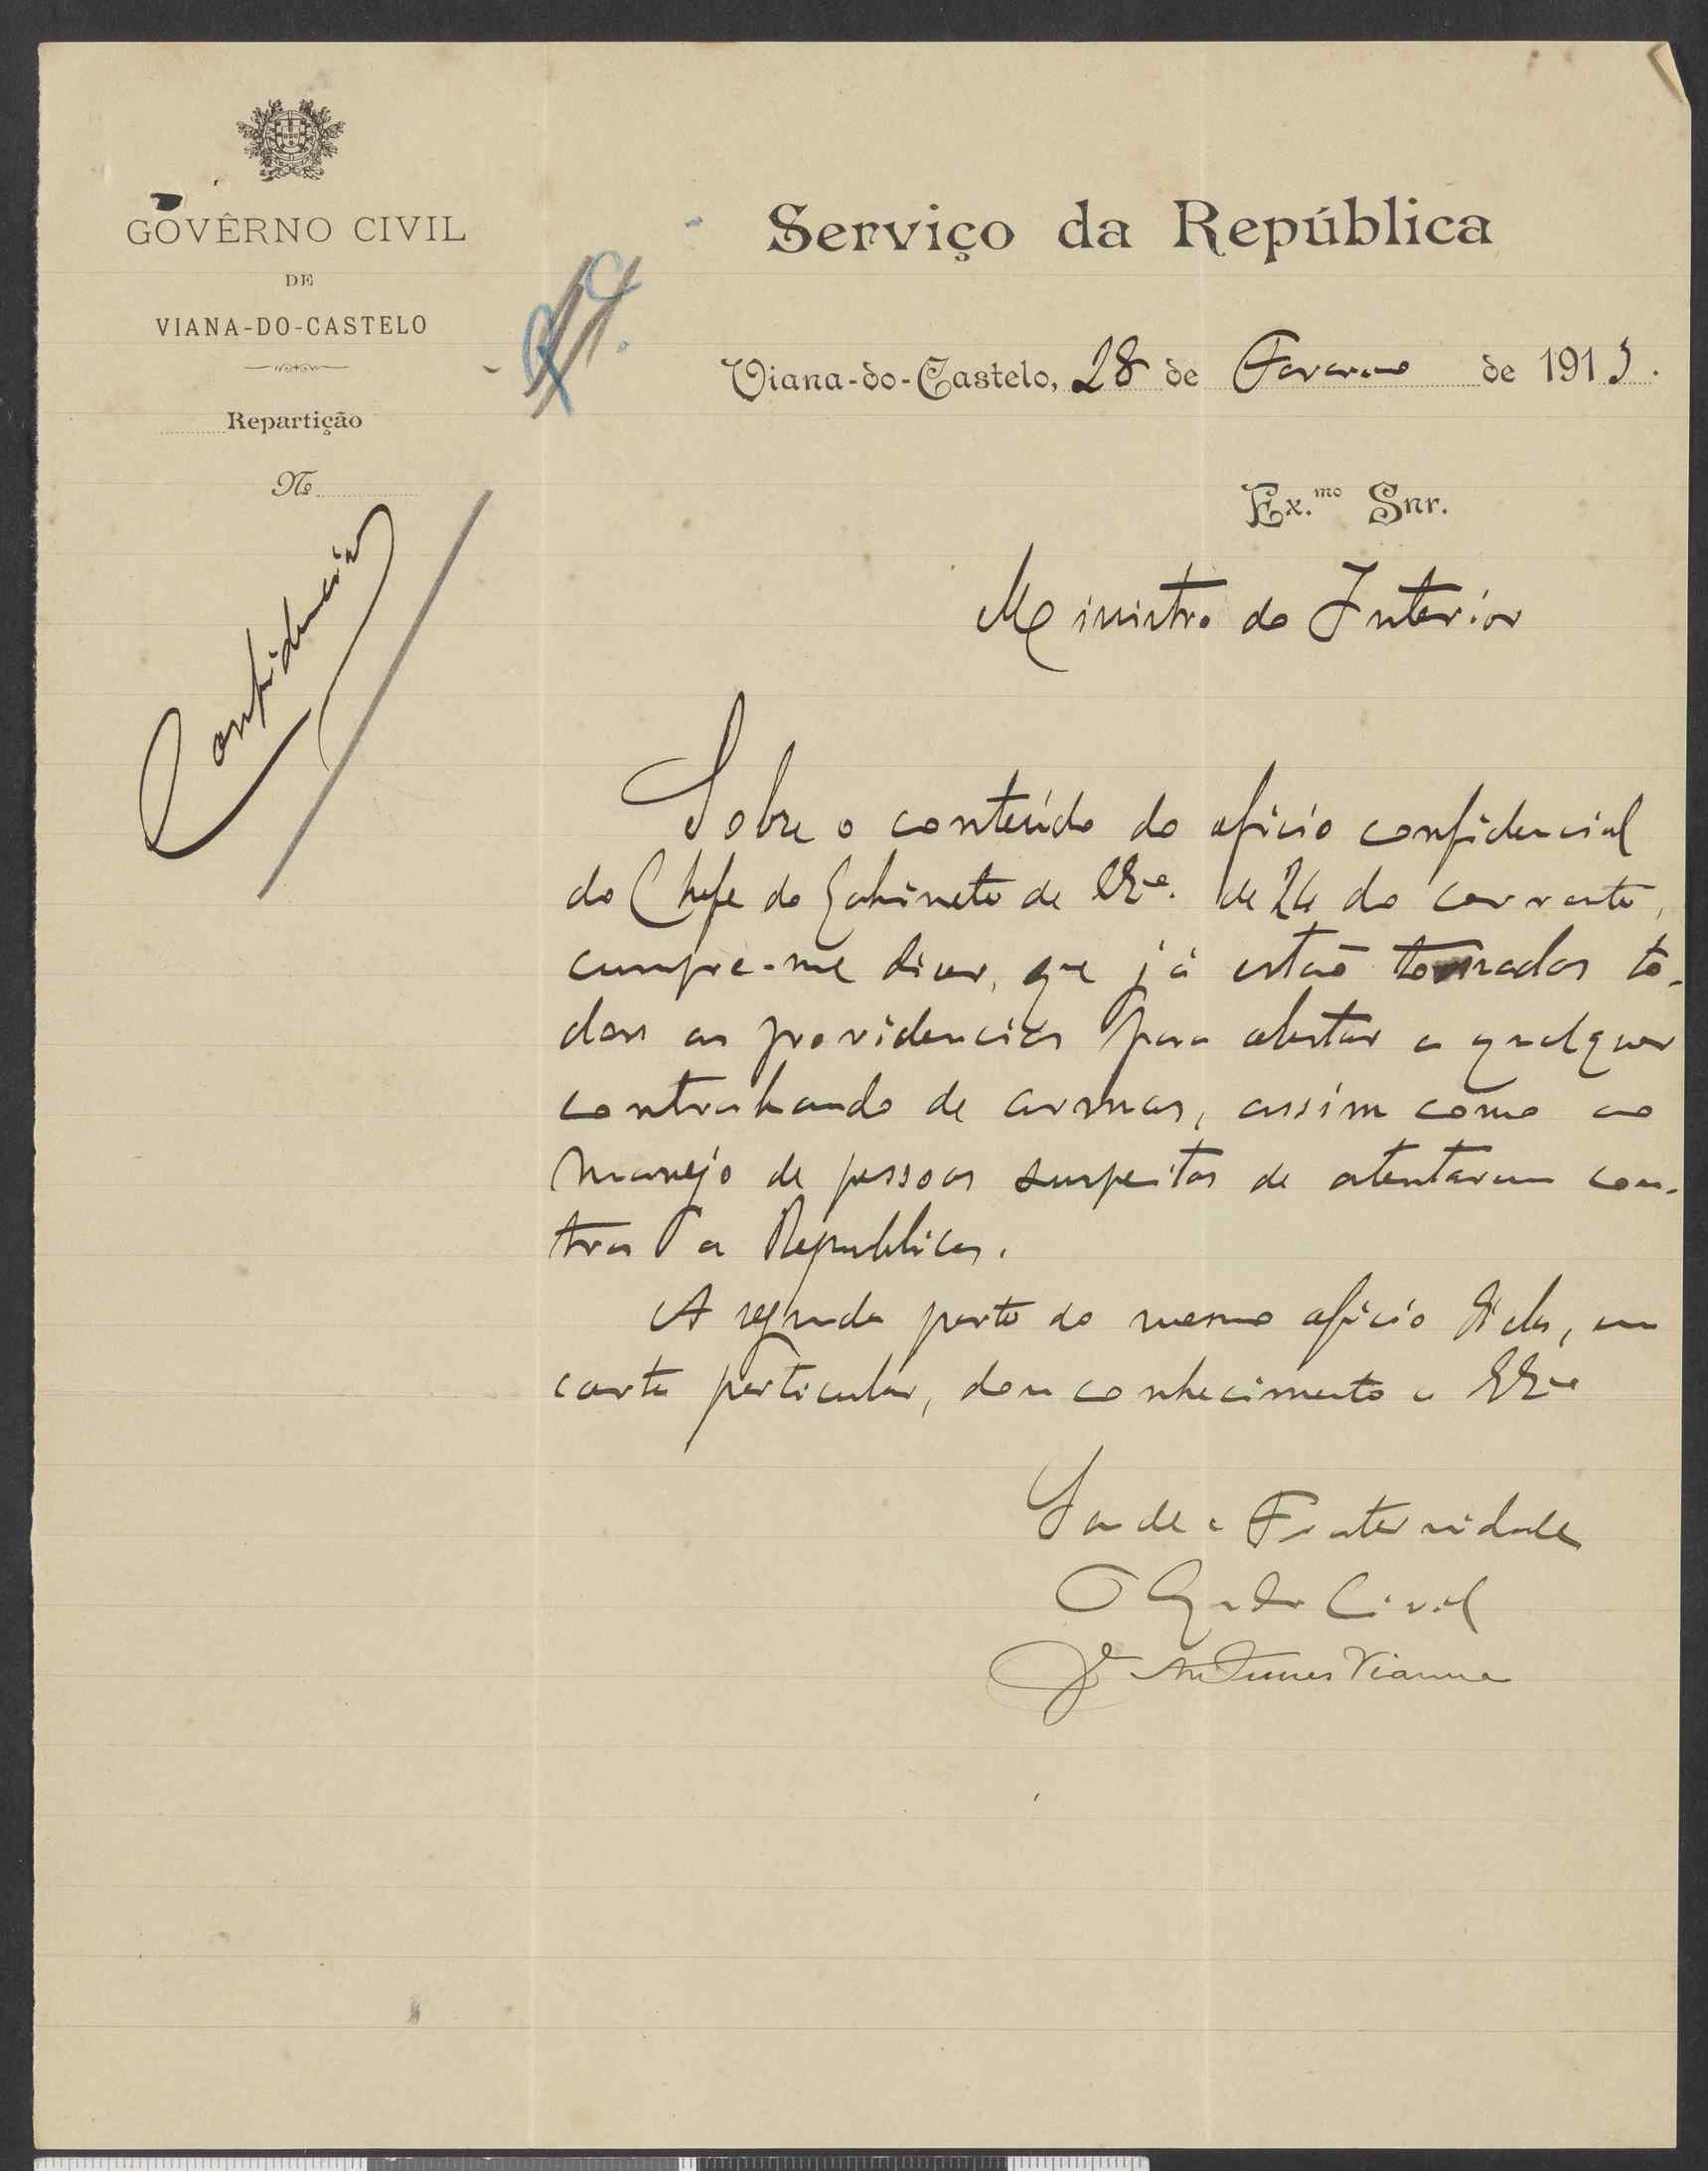 GOVÊRNO CIVIL
DE
VIANA-DO-CASTELO
Repartição
Nº
Confidencial
Serviço da República
Viana-do-Castelo, 28 de Fevereiro de 1913.
Ex.mo Snr.
Ministro do Interior
Sobre o conteúdo do oficio confidencial
do Chefe do Gabinete de VExª. de 24 do corrente,
cumpre-me dizer, que já estão tomadas to-
das as providencias para obstar a qualquer
contrabando de armas, assim como ao
manejo de pessoas suspeitas de atentarem con-
tra a Republica.
A segunda parte do mesmo oficio, em
carta particular, dou conhecimento a VExª
Saude e Fraternidade
O Gdor Civil
Antunes Vianna